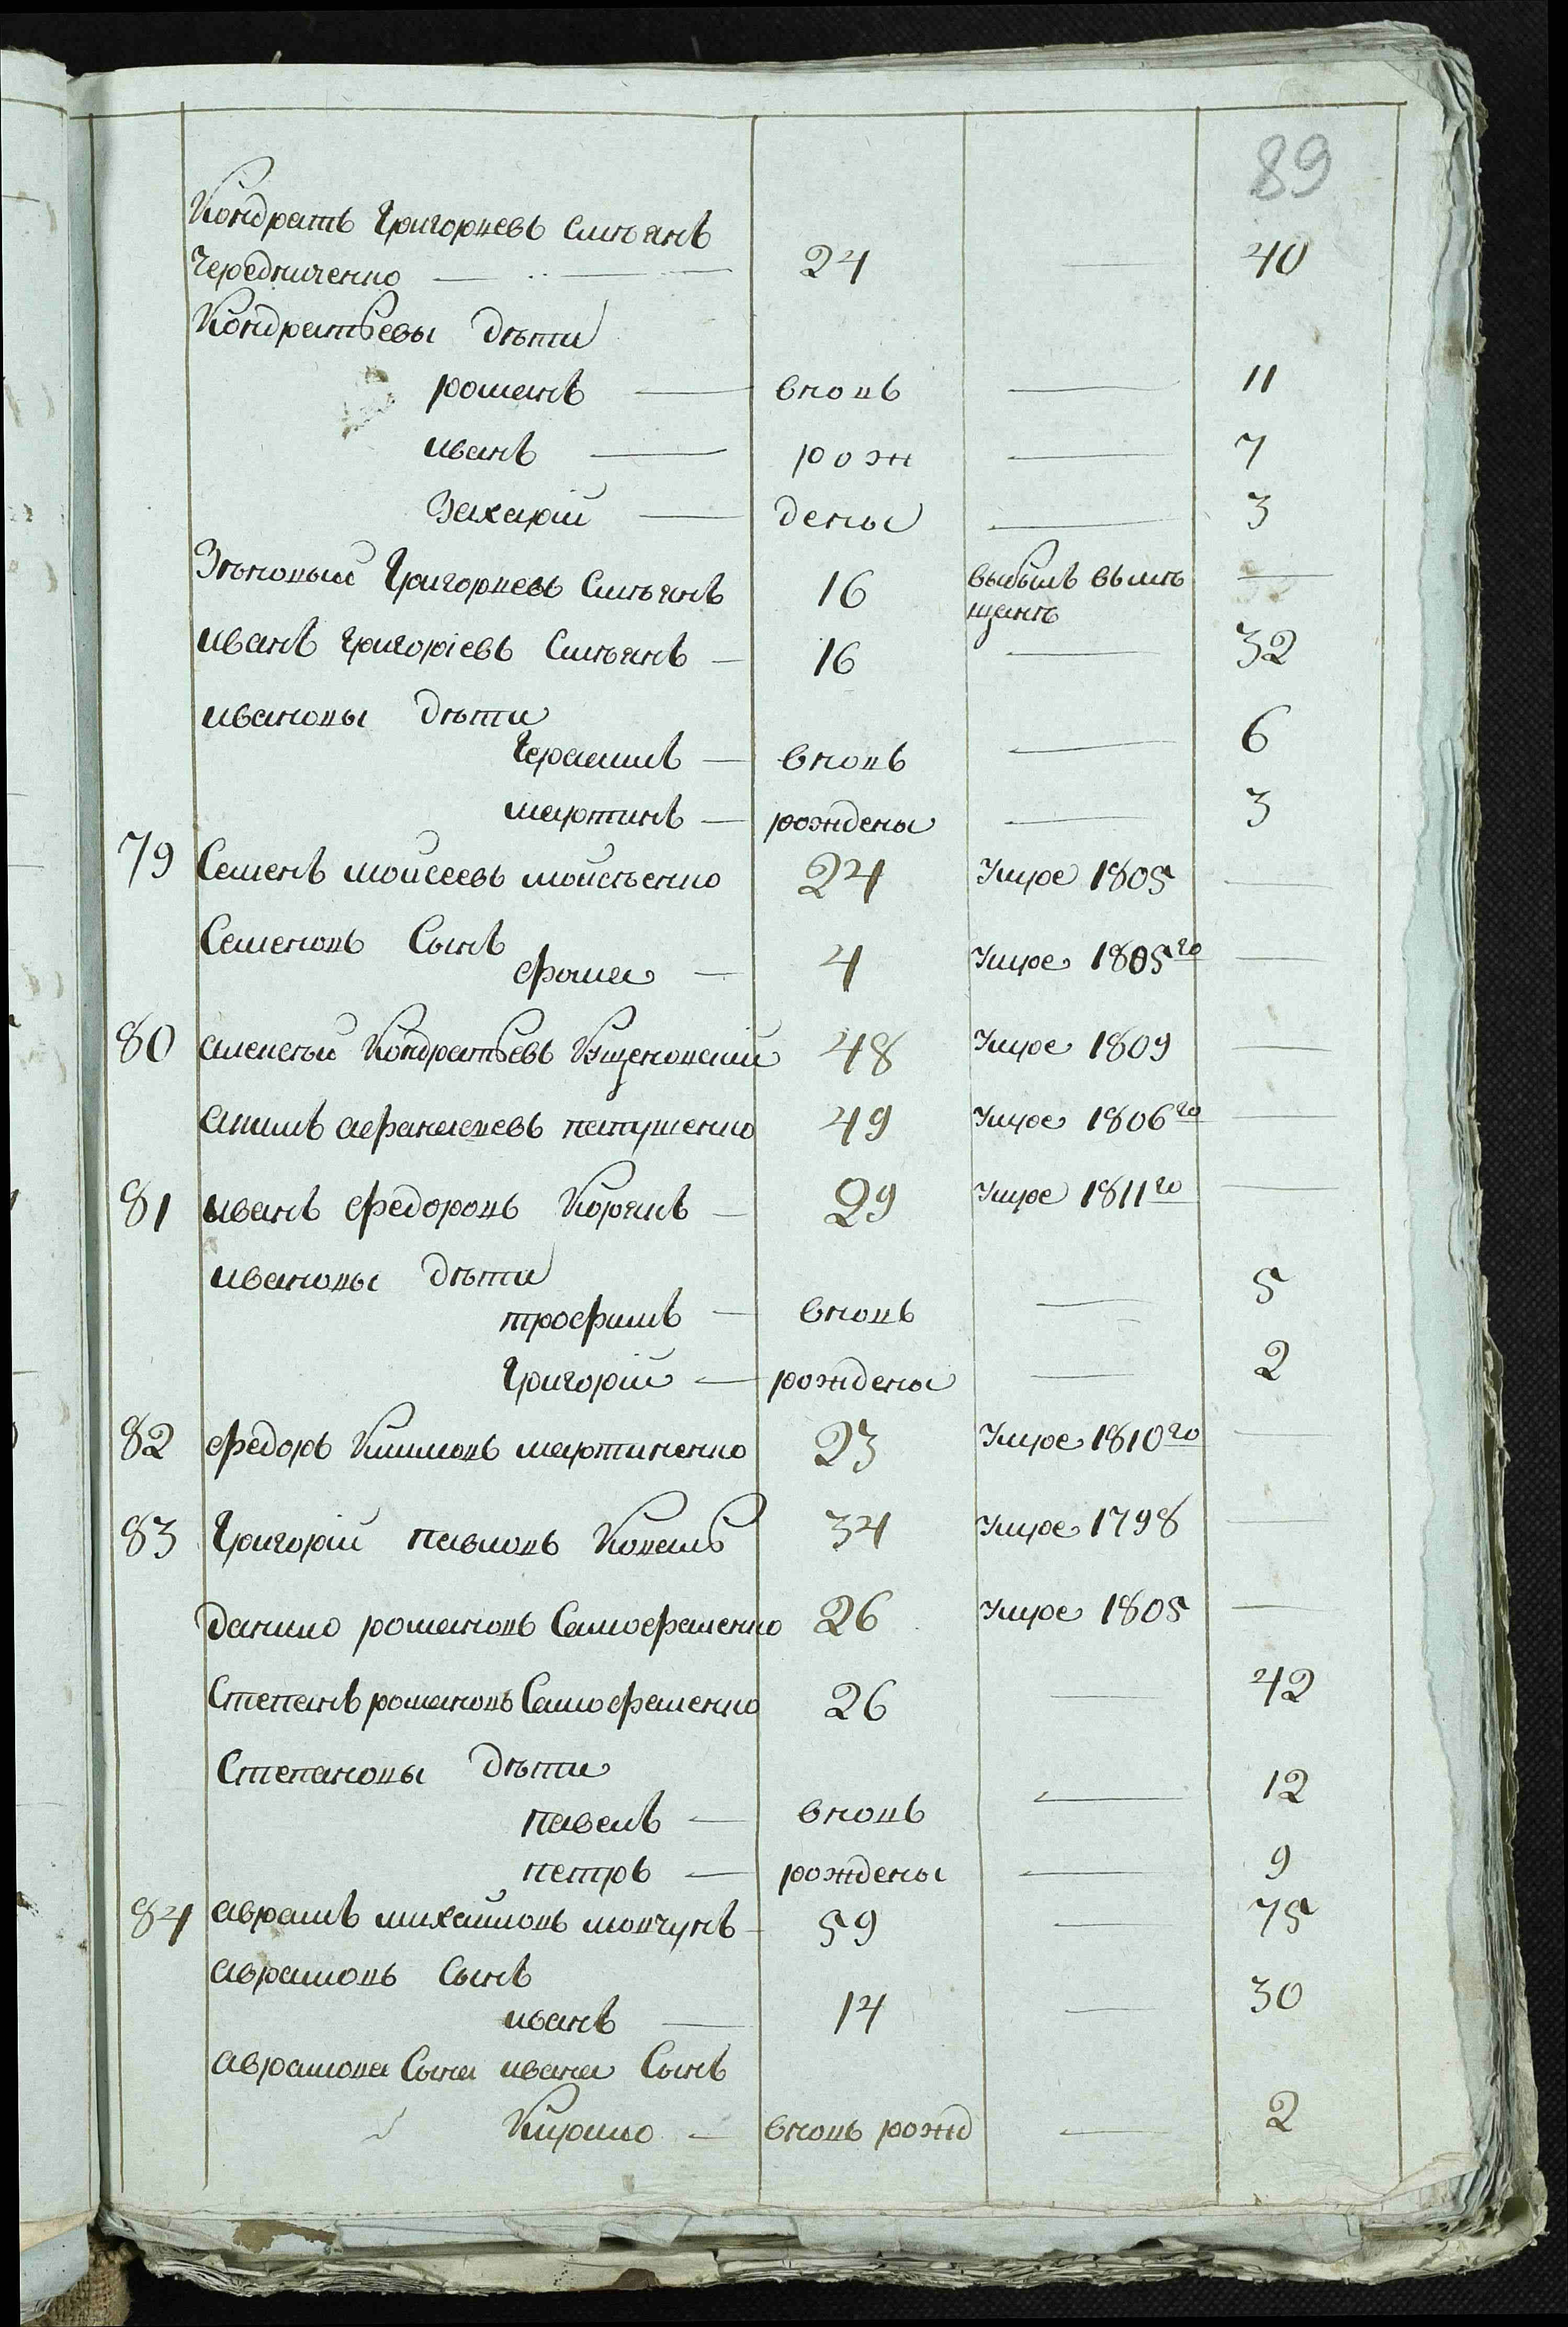 89
Кондратъ Григорьевъ Смѣянъ
Чередниченко — 24 — 40
Кондратьевы дѣти
романъ — вновь — 11
иванъ — рож — 7
Захарій — дены — 3
Зѣновый Григорьевъ Смѣянъ 16 выбылъ въ мѣ —
щанѣ
иванъ Григоріевъ Смѣянъ — 16 — 32
ивановы дѣти
Герасимъ — вновь — 6
мартинъ — рождены — 3
79 Семенъ моисеевъ моисѣенко 24 Умре 1805 —
Семеновъ Сынъ
фома — 4 Умре 1805го —
80 алексѣй Кондратьевъ Кущеновский 48 Умре 1809 —
акимъ афанасьевъ папушенко 49 Умре 1806го —
81 иванъ федоровъ Корякъ — 29 Умре 1811го —
ивановы дѣти
трофимъ — вновь — 5
Григорій — рождены — 2
82 федоръ Климовъ мартиненко 23 Умре 1810го —
83 Григорій павловъ Коваль 34 Умре 1798 —
данило романовъ Самофаленко 26 Умре 1805 —
Степанъ романовъ Самофаленко 26 — 42
Степановы дѣти
павелъ — вновь — 12
петръ — рождены — 9
84 аврамъ михайловъ мовчунъ — 59 — 75
аврамовъ Сынъ
иванъ — 14 — 30
аврамова Сына ивана Сынъ
Кирило — вновь рожд — 2